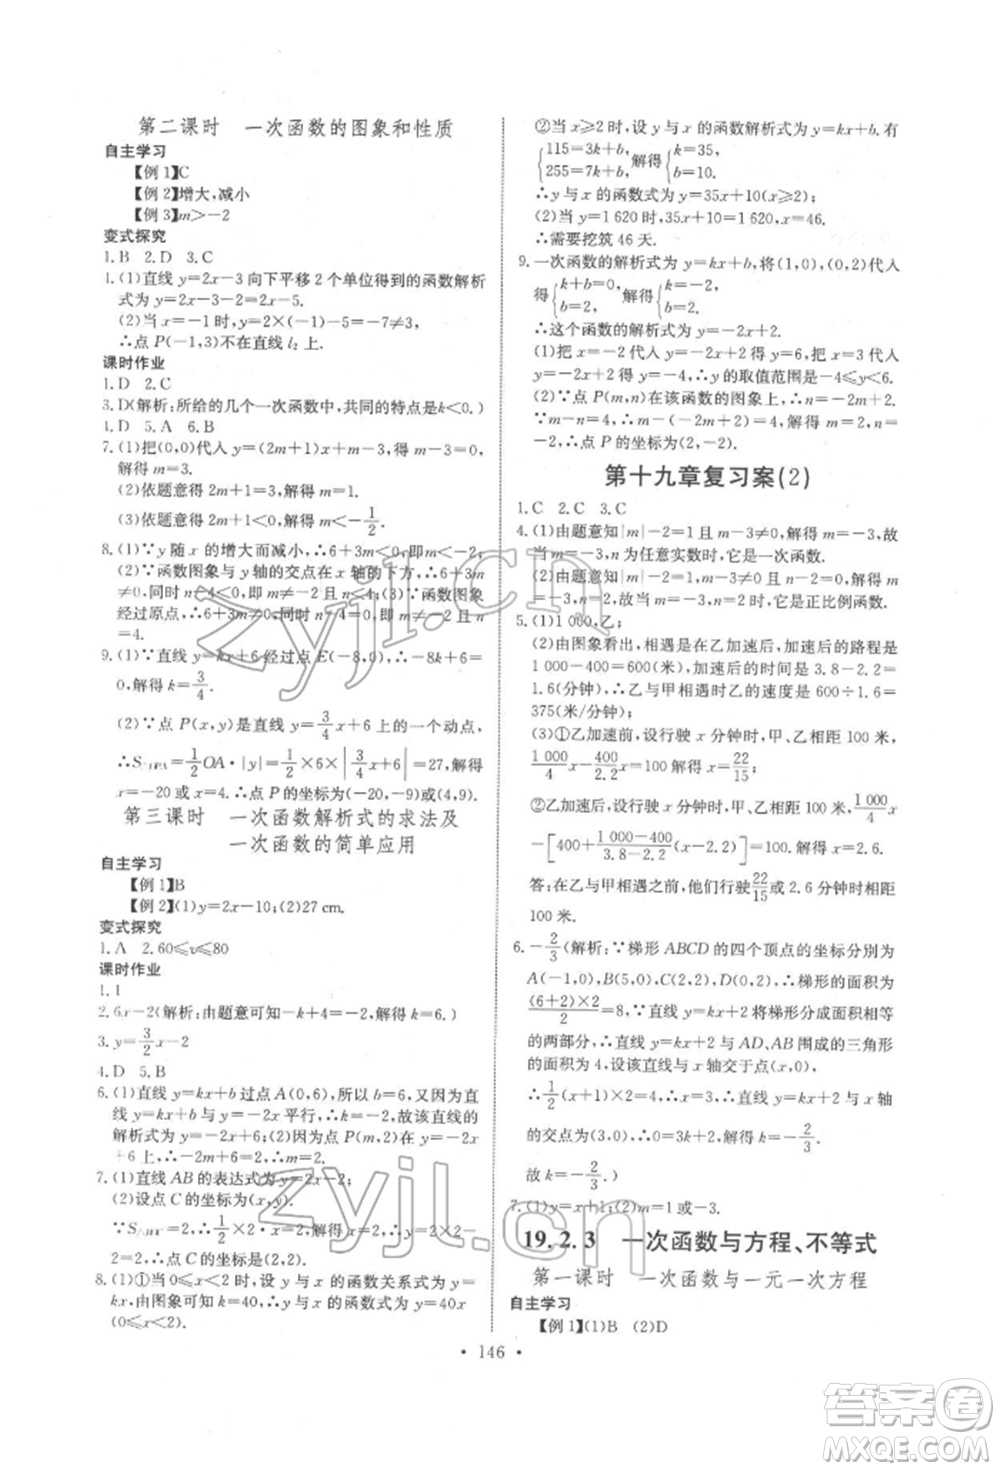 第二课时 一次函数的图象和性质
自主学习
【例1】C
【例2】增大,减小
【例3】m>-2
变式探究
1.B 2.D 3.C
1.(1)直线 y=2x-3 向下平移 2 个单位得到的函数解析
式为 y=2x-3-2=2x-5.
(2)当 x=-1 时,y=2×(-1)-5=-7≠3,
∴点 P(-1,3)不在直线 l₂ 上.
课时作业
1.D 2.C
3.D(解析:所给的几个一次函数中,共同的特点是k<0.)
1.D 5.A 6.B
7.(1)把(0,0)代入 y=(2m+1)x+m-3,得 m-3=0.
解得 m=3.
(2)依题意得 2m+1=3,解得 m=1.
(3)依题意得 2m+1<0,解得 m<-1/2.
8.(1)∵y 随 x 的增大而减小,∴6+3m<0,解得
m<-2.(2)∵函数图象与 y 轴的交点在 x 轴的下方,∴6+3m≠
0,同时 n-4<0,解得 m≠-2,n<4.(3)∵函数图象
经过原点,∴6+3m≠0,n-4=0,解得 m≠-2,
n=4.
9.(1)∵直线 y=kx+6 经过点 E(-8,0),∴-8k+6=
0,解得 k=3/4.
(2)∵点 P(x,y)是直线 y=3/4x+6 上的一个动点,
∴S△OPA=1/2OA·|y|=1/2×6×|3/4x+6|=27,解得
x=-20 或 x=4.∴点 P 的坐标为(-20,-9)或(4,9).
第三课时 一次函数解析式的求法及
一次函数的简单应用
自主学习
【例1】B
【例2】(1)y=2x-10;(2)27 cm.
变式探究
1.A 2.60≤v≤80
课时作业
1.1
2.6x-2(解析:由题意可知-k+4=-2,解得k=6.)
3.y=3/2x-2
4.D 5.B
6.(1)直线 y=kx+b 过点 A(0,6),所以 b=6,又因为
直线 y=kx+b 与 y=-2x 平行,∴k=-2,故该直线的
解析式为 y=-2x+6;(2)因为点 P(m,2)在 y=-2x
+6 上,∴-2m+6=2.∴m=2.
7.(1)直线 AB 的表达式为 y=2x-2.
(2)设点 C 的坐标为(x,y).
∵S△BOC=2,∴1/2×2·x=2,解得 x=2,∴y=2×2-2
=2,∴点 C 的坐标是(2,2).
8.(1)①当 0≤x≤2 时,设 y 与 x 的函数解析式为 y=
kx.由图象可知 k=40,∴y 与 x 的函数式为 y=40x
(0≤x≤2).
②当 x≥2 时,设 y 与 x 的函数解析式为 y=kx+b.有
{115=3k+b, 255=7k+b, 解得{k=35, b=10.
∴y 与 x 的函数式为 y=35x+10(x≥2).
(2)当 y=1 620 时,35x+10=1 620,x=46.
∴需要挖筑 46 天.
9.一次函数的解析式为 y=kx+b,将(1,0),(0,2)代入
得{k+b=0, b=2, 解得{k=-2, b=2.
∴这个函数的解析式为 y=-2x+2.
(1)把 x=-2 代入 y=-2x+2 得 y=6,把 x=3 代入
y=-2x+2 得 y=-4,∴y 的取值范围是-4≤y<6.
(2)∵点 P(m,n)在该函数的图象上,∴n=-2m+2.
∵m-n=4,∴m-(-2m+2)=4,解得 m=2,
n=-2.∴点 P 的坐标为(2,-2).
第十九章复习案(2)
1.C 2.C 3.C
4.(1)由题意知|m|-2=1 且 m-3≠0,解得 m=-3,故
当 m=-3,n 为任意实数时,它是一次函数.
(2)由题意知|m|-2=1 且 m-3≠0 且 n-2=0,解得
m=-3,n=2,故当 m=-3,n=2 时,它是正比例函数.
5.(1)1 000,乙;
(2)由图象看出,相遇是在乙加速后,加速后的路程是
1 000-400=600(米),加速后的时间是 3.8-2.2=
1.6(分钟),甲与乙相遇时乙的速度是 600÷1.6=
375(米/分钟);
(3)①乙加速前,设行驶 x 分钟时,甲、乙相距 100 米.
1 000/4x-400/2.2x=100,解得 x=22/15;
②乙加速后,设行驶 x 分钟时,甲、乙相距 100 米.1 000/4x
-[400+(1 000-400)/(3.8-2.2)(x-2.2)]=100,解得 x=2.6.
答:在乙与甲相遇前,他们行驶22/15或 2.6 分钟时相距
100 米.
6.-2/3(解析:∵梯形 ABCD 的四个顶点的坐标分别为
A(-1,0),B(5,0),C(2,2),D(0,2),∴梯形的面积为
(6+2)×2/2=8,∵直线 y=kx+2 将梯形分成面积相等
的两部分,∴直线 y=kx+2 与 AD,AB 围成的三角形
的面积为 4,设该直线与 x 轴交于点(x,0),
∴1/2(x+1)×2=4,∴x=3,∴直线 y=kx+2 与 x 轴
的交点为(3,0),∴0=3k+2,解得 k=-2/3.
故 k=-2/3.)
7.(1)y=x+1;(2)m=1或-3.
19.2.3 一次函数与方程、不等式
第一课时 一次函数与一元一次方程
自主学习
【例1】(1)B (2)D
• 146 •
zyjl.cn
zyjl.cn
答案圈
MXQE.COM